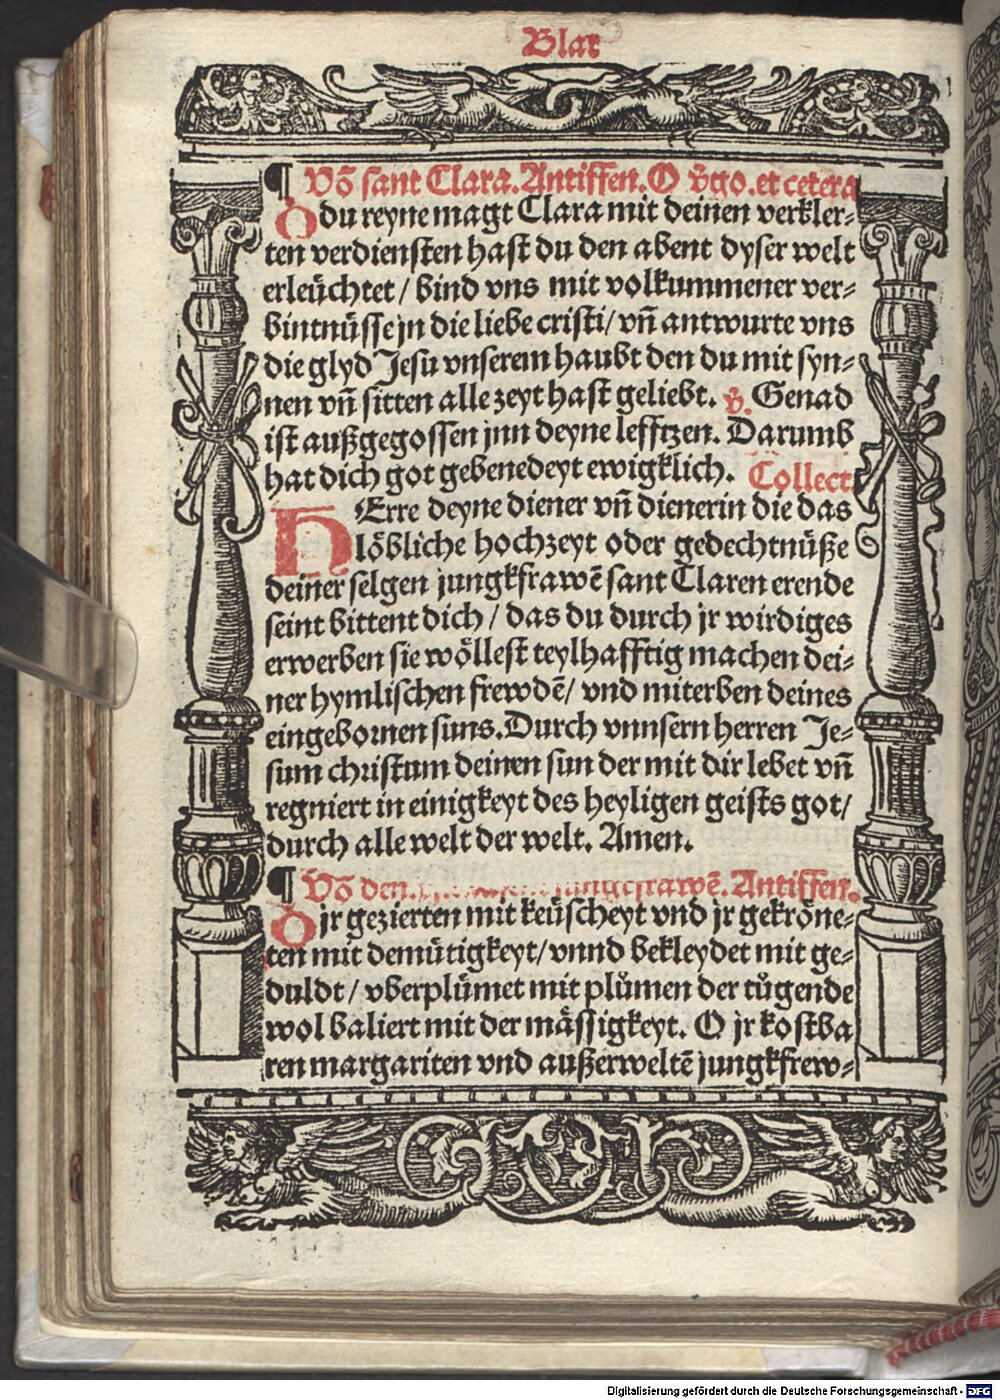 Blat
¶ Võ sant Clara. Antiffen. O v̄go. et cetera
O du reyne magt Clara mit deinen verkler⸗
ten verdiensten hast du den abent dyser welt
erleüchtet / bind vns mit volkummener ver⸗
bintnüsse jn die liebe cristi / vñ antwurte vns
die glyd Jesu vnserem haubt den du mit syn⸗
nen vñ sitten alle zeyt hast geliebt. v̄. Genad
ist außgegossen jnn deyne lefftzen. Darumb
hat dich got gebenedeyt ewigklich. Collect.
HErre deyne diener vñ dienerin die das
löbliche hochzeyt oder gedechtnüße
deiner selgen jungkfrawẽ sant Claren erende
seint bittent dich / das du durch jr wirdiges
erwerben sie wöllest teylhafftig machen dei⸗
ner hymlischen frewdẽ / vnd miterben deines
eingebornen suns. Durch vnnsern herren Je⸗
sum christum deinen sun der mit dir lebet vñ
regniert in einigkeyt des heyligen geists got /
durch alle welt der welt. Amen.
¶ Võ den jungcfrawẽ. Antiffen.
O jr gezierten mit keüscheyt vnd jr gekröne⸗
ten mit demütigkeyt / vnnd bekleydet mit ge⸗
duldt / vberplümet mit plůmen der tůgende
wol baliert mit der mässigkeyt. O jr kostba
ren margariten vnd außerweltẽ jungkfrew⸗
Digitalisierung gefördert durch die Deutsche Forschungsgemeinschaft - DFG